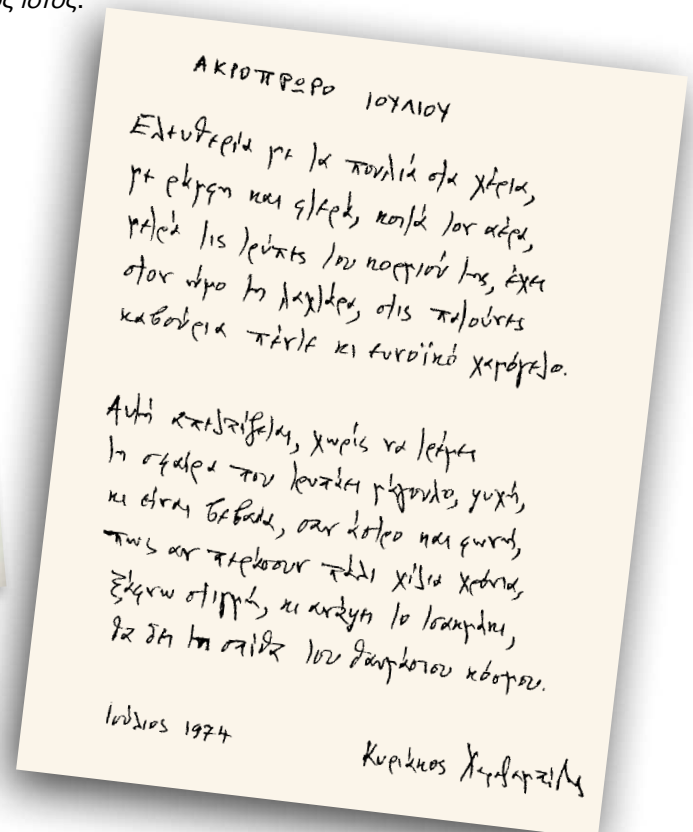 ς ιστός.
ΑΚΡΟΠΡΩΡΟ ΙΟΥΛΙΟΥ
Ελευθερία με τα πουλιά στα χέρια,
με ράμφη και φτερά, κοιτά τον αέρα,
μετρά τις τρύπες του κορμιού της, έχει
στον ώμο τη λαχτάρα, στις πατούνες
καβούρια πέντε κι ευνοϊκό χαμόγελο.
Αυτή απελπίζεται, χωρίς να τρέμει
τη σφαίρα που τρυπάει μάγουλο, ψυχή,
κι είναι βεβαία, σαν άστρο και φωνή,
πως αν περάσουν πάλι χίλια χρόνια,
ξάφνω στιγμή, κι ανάψη το τσακμάκι,
θα δη τη σπίθα του θαυμάσιου κόσμου.
Ιούλιος 1974
Κυριάκος Χαραλαμπίδης